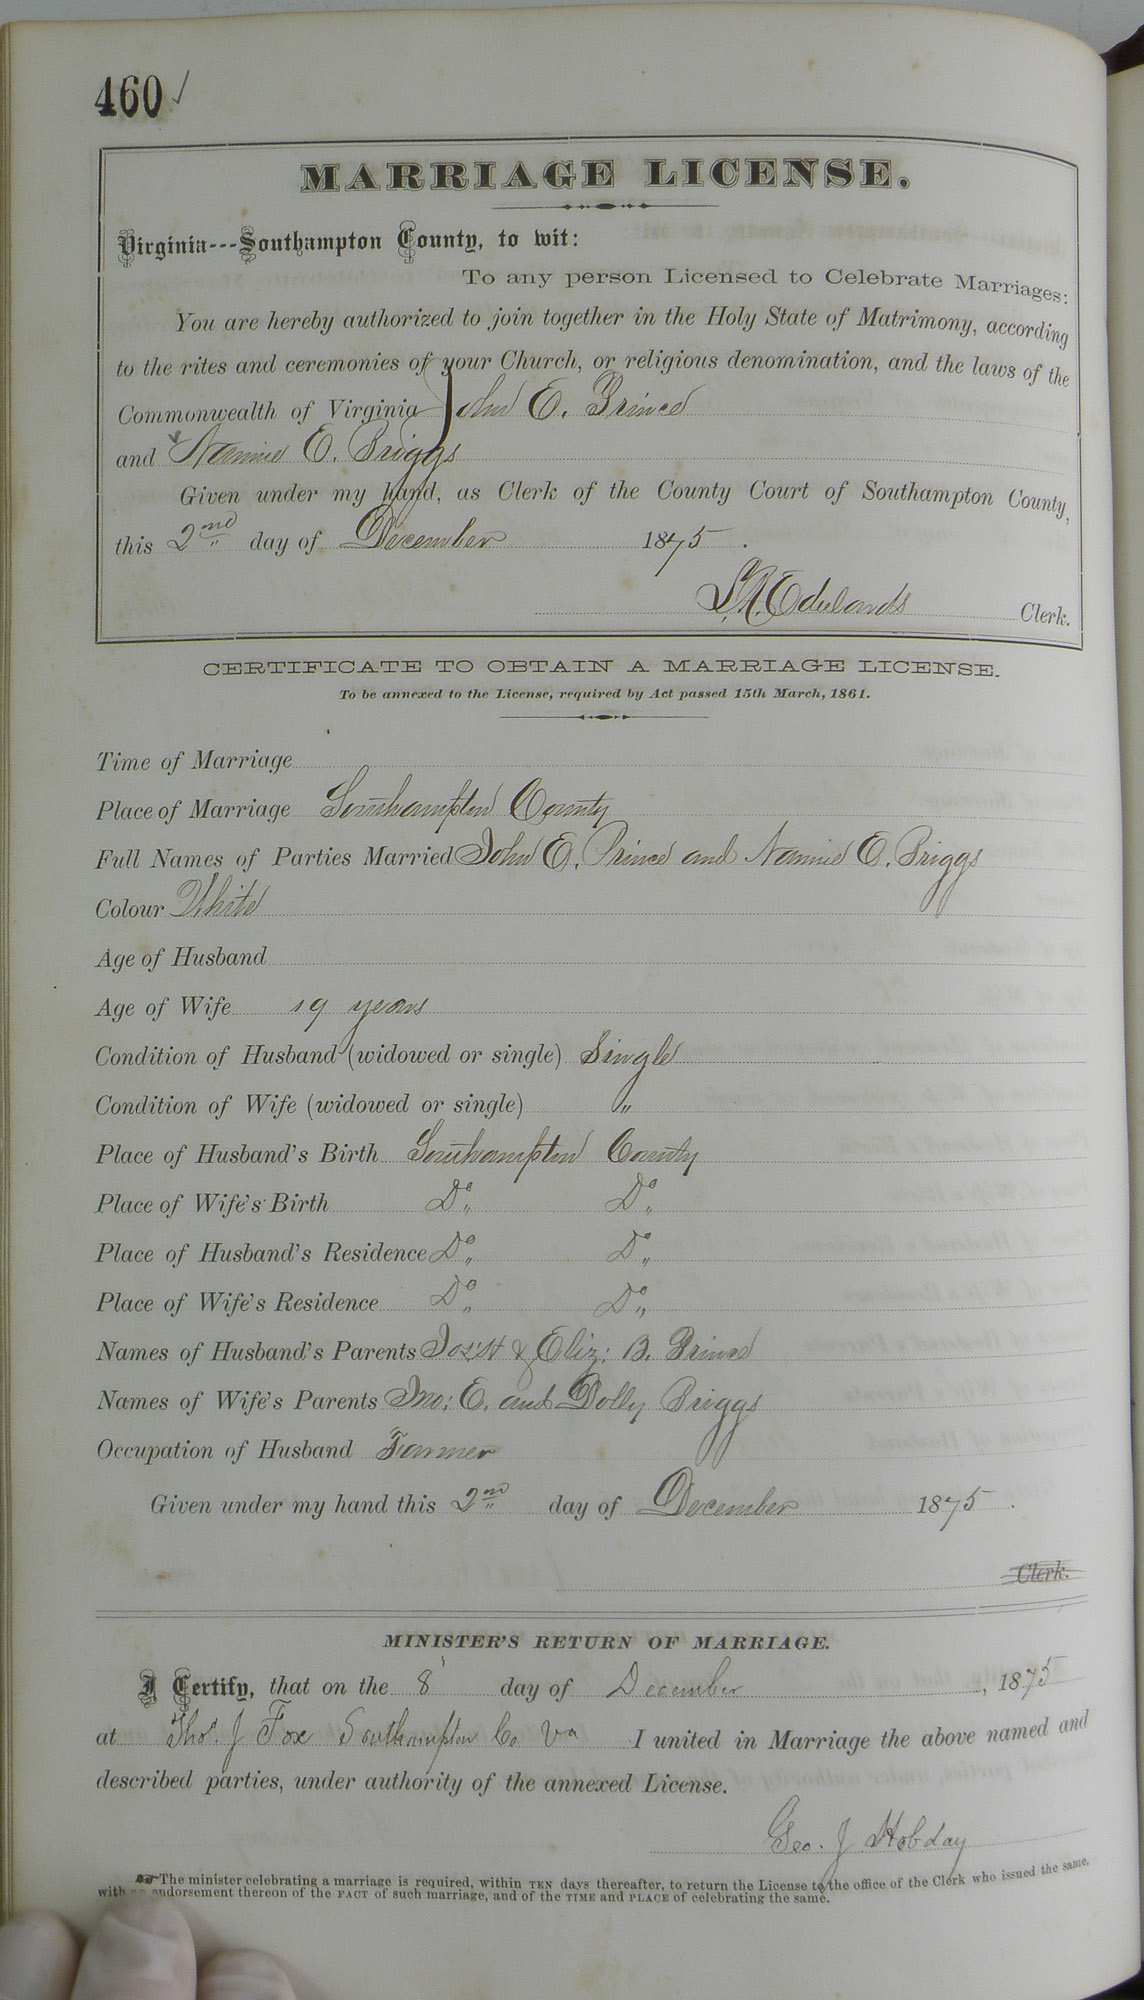 460 ✓
MARRIAGE LICENSE.
Virginia---Southampton County, to wit:
To any person Licensed to Celebrate Marriages:
You are hereby authorized to join together in the Holy State of Matrimony, according
to the rites and ceremonies of your Church, or religious denomination, and the laws of the
Commonwealth of Virginia John E. Prince
and Nannie E. Briggs
Given under my hand, as Clerk of the County Court of Southampton County,
this 2nd day of December 1875.
L. R. Edwards Clerk.
CERTIFICATE TO OBTAIN A MARRIAGE LICENSE.
To be annexed to the License, required by Act passed 15th March, 1861.
Time of Marriage
Place of Marriage Southampton County
Full Names of Parties Married John E. Prince and Nannie E. Briggs
Colour White
Age of Husband
Age of Wife 19 years
Condition of Husband (widowed or single) Single
Condition of Wife (widowed or single) "
Place of Husband's Birth Southampton County
Place of Wife's Birth Do Do
Place of Husband's Residence Do Do
Place of Wife's Residence Do Do
Names of Husband's Parents & Eliz: B. Prince
Names of Wife's Parents Jno: E. and Dolly Briggs
Occupation of Husband Farmer
Given under my hand this 2nd day of December 1875.
Clerk.
MINISTER'S RETURN OF MARRIAGE.
I Certify, that on the 8 day of December, 1875
at Thos. J Fox Southampton Co Va I united in Marriage the above named and
described parties, under authority of the annexed License.
Geo. J Hobday
☞The minister celebrating a marriage is required, within TEN days thereafter, to return the License to the office of the Clerk who issued the same,
with an endorsement thereon of the FACT of such marriage, and of the TIME and PLACE of celebrating the same.